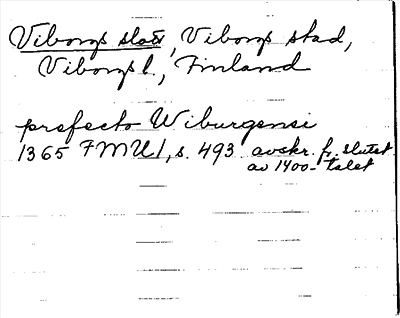 Viborgs slott, Viborgs stad,
Viborgs l., Finland
prefecto Wiburgensi
1365 FMU I, s. 493 avskr. fr. slutet
av 1400-talet